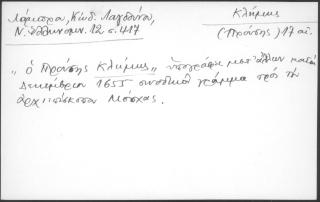 Λάμπρου, Κώδ. Λαγδούτου,
Ν. Ἑλληνομν. 12 σ. 417
Κλήμης
(Πράσης) 17 αἰ.
„ ὁ Πράσης Κλήμης „ ὑπογράφει μετ' ἄλλων κατὰ
Δεκέμβριον 1655 συνοδικὸν γράμμα πρὸς τὸν
ἀρχιεπίσκοπον Μόσχας.